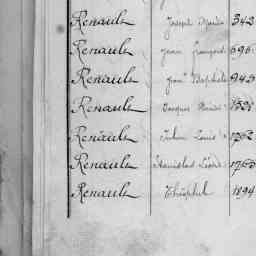 Renault Joseph 343
Renault Jean François 696
Renault Jean Baptiste 943
Renault Jacques
Renault Jules Louis 1762
Renault Stanislas
Renault Théophile 1894